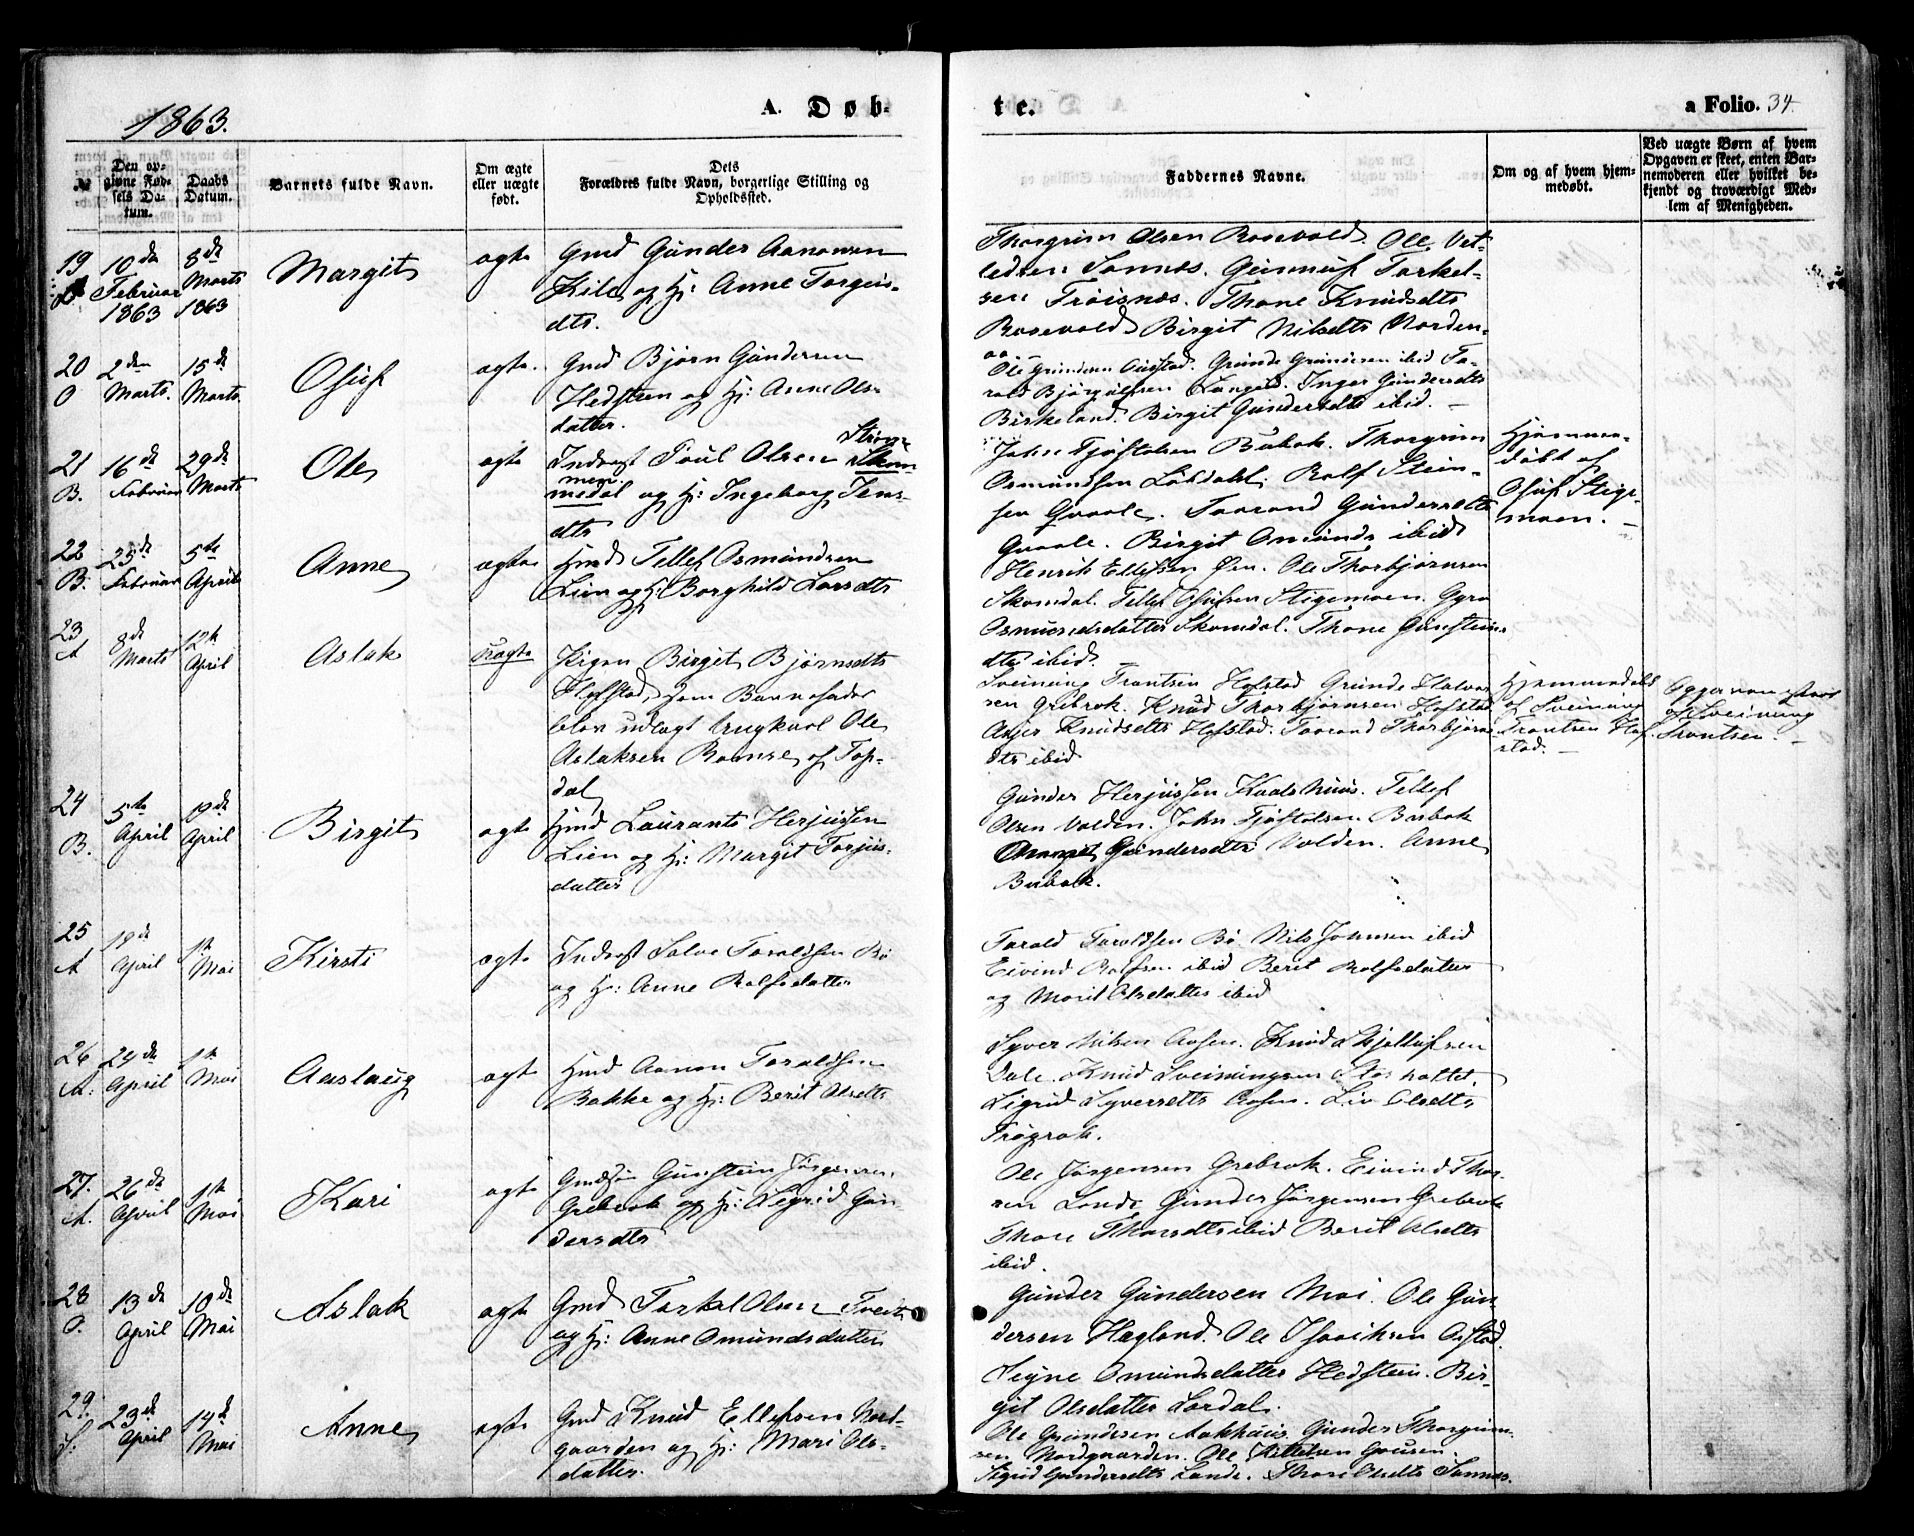 1863.
A. Døb-
te.
a Folio. 34.
№
Den op-
givne Fød-
sels Da-
tum.
Daabs
Datum.
Barnets fulde Navn.
Om ægte
eller uægte
født.
Dets
Forældres fulde Navn, borgerlige Stilling og
Opholdsted.
Faddernes Navne.
Om og af hvem hjem-
medøbt.
Ved uægte Børn af hvem
Opgaven er skeet, enten Bar-
nemoderen eller hvilket be-
kjendt og troværdigt Med-
lem af Menigheden.
19
10de
Februar
1863
8de
Marts
1863
Margit
ægte
Gmd Gunder Aanonsen
Kile og H: Anne Torgeis-
dtr.
Thorgrim Olsen Rosevold. Ole Vet-
ledsen Sannes. Gunnuf Torkel-
sen Frøisnæs. Thone Knudsdtr
Rosevold Birgit Nilsdtr Norden-
aa
20
O
2den
Marts.
15de
Marts
Osuf
ægte.
Gmd Bjørn Gundersen
Hedsteen og H: Anne Ols-
datter.
Ole Gundersen Austad. Gunde Gundersen ibid Ta-
rald Bjørgulfsen Langeid. Inger Gundersdtr
Birkeland. Birgit Gundersdtr ibid.
21
B.
16de
Februar
29de
Marts
Ole
ægte
Inderst Poul Olsen
medal og H: Ingeborg Jens
dtr
John Tjøstolsen Bubak. Thorgrim
Osmundsen Løbdahl. Rolf Stein-
sen Qvaale. Taarand Gundersdtr
Qvaale. Birgit Omunds ibid
Hjemme-
døbt af
Osuf Stige-
moen.
22
B.
25de
Februar
5te
April
Anne
ægte
Hmd Tellef Osmundsen
Lien og H: Borghild Larsdtr
Henrik Ellefsen Øen. Ole Thorbjørnsen
Skomdal. Tellef Osufsen Stigemoen. Gyro
Osmundsdatter Skomdal. Thone Gunsteins
dtr ibid.
23
A
8de
Marts
12te
April
Aslak
uægte
Pigen Birgit Bjørnsdtr
Hofstad, som Barnefader
blev udlagt Ungkarl Ole
Aslaksen Romse af Top-
dal
Sveining Frontsen Hofstad Gunde Halvor
sen Grebrok. Knud Thorbjørnsen Hofstad
Asjer Knudsdtr Hofstad. Taarand Thorbjørns
dtr ibid
Hjemmedøbt
af Sveining
Frontsen Hof-
stad.
af Sveining
Frontsen.
24
B.
5te
April
19de
April
Birgit
ægte
Hmd Laurants Herjussen
Lien og H: Margit Torjus-
datter
Gunder Herjussen Kaalshuus. Tellef
Olsen Valden. John Tjøstolsen Bubak
Gundersdtr Volden. Anne
Bubak.
25
A
19de
April
1te
Mai
Kirsti
ægte
Inderst Salve Taraldsen Bø
og H: Anne Rolfsdatter
Tarald Taraldsen Bø Nils Johnsen ibid
Eivind Rolfsen ibid Berit Rolfsdatter
og Marit Olsdatter ibid
26
A.
24de
April
1te
Mai
Aaslaug
ægte
Hmd Aanon Taraldsen
Bakke og H: Berit Olsdtr
Syver Nilsen Aasen. Knud Kjetlufsen
Dale. Knud Sveinungsen
Sigrid Syversdtr Aasen. Liv Olsdtr
Frøgrok.
27.
A.
26de
April
1te
Mai
Kari
ægte
Gmdsøn Gunstein Jørgensen
Grebrok og H: Sigrid Gun
dersdtr
Ole Jørgensen Grebrok. Eivind Thor
sen Lande Gunder Jørgensen Grebrok
Thore Thorsdtr ibid Berit Olsdtr
ibid.
28
O.
13de
April
10de
Mai
Aslak
ægte
Gmd Torkel Olsen Tveit
og H: Anne Omundsdatter
Gunder Gundersen Moi. Ole Gun
dersen Hagland. Ole Isaaksen Ostad.
Signe Omundsdatter Hedstein. Bir-
git Olsdatter Lordal.
29.
S.
23de
April
14de
Mai
Anne
ægte
Gmd Knud Ellefsen Nord-
gaarden og H: Mari Ols-
datter.
Ole Gundersen Aakhuus. Gunder Thorgrim-
sen Nordgaarden. Ole Kittelsen
Sigrid Gundersdtr Lande. Thore Olsdtr Sannes.